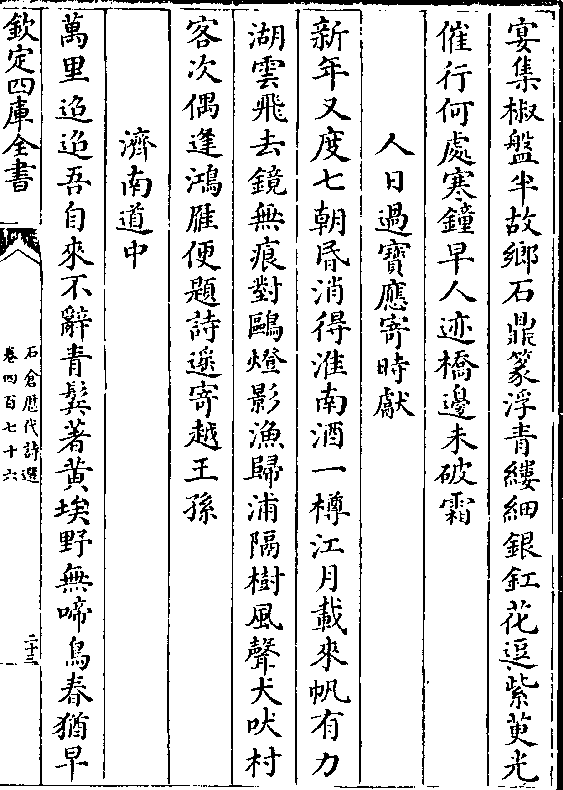 宴集椒盤半故鄉石鼎篆浮青縷細銀釭花逗紫萸光
催行何處寒鐘早人迹橋邊未破霜
人日過寶應寄時獻
新年又度七朝昏消得淮南酒一樽江月載來帆有力
湖雲飛去鏡無痕對鷗燈影漁歸浦隔樹風聲犬吠村
客次偶逢鴻雁便題詩遥寄越王孫
濟南道中
萬里迢迢吾自來不辭青鬢著黄埃野無啼鳥春猶早
欽定四庫全書
石倉歴代詩選
卷四百七十六
二十三